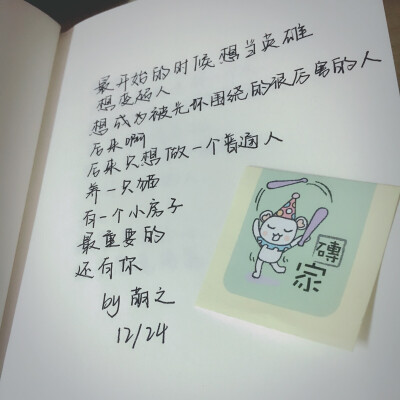 最开始的时候想当英雄
想变超人
想成为被光环围绕的很厉害的人
后来啊
后来只想做一个普通人
养一只猫
有一个小房子
最重要的
还有你
by 萌之
12/24
磚
家